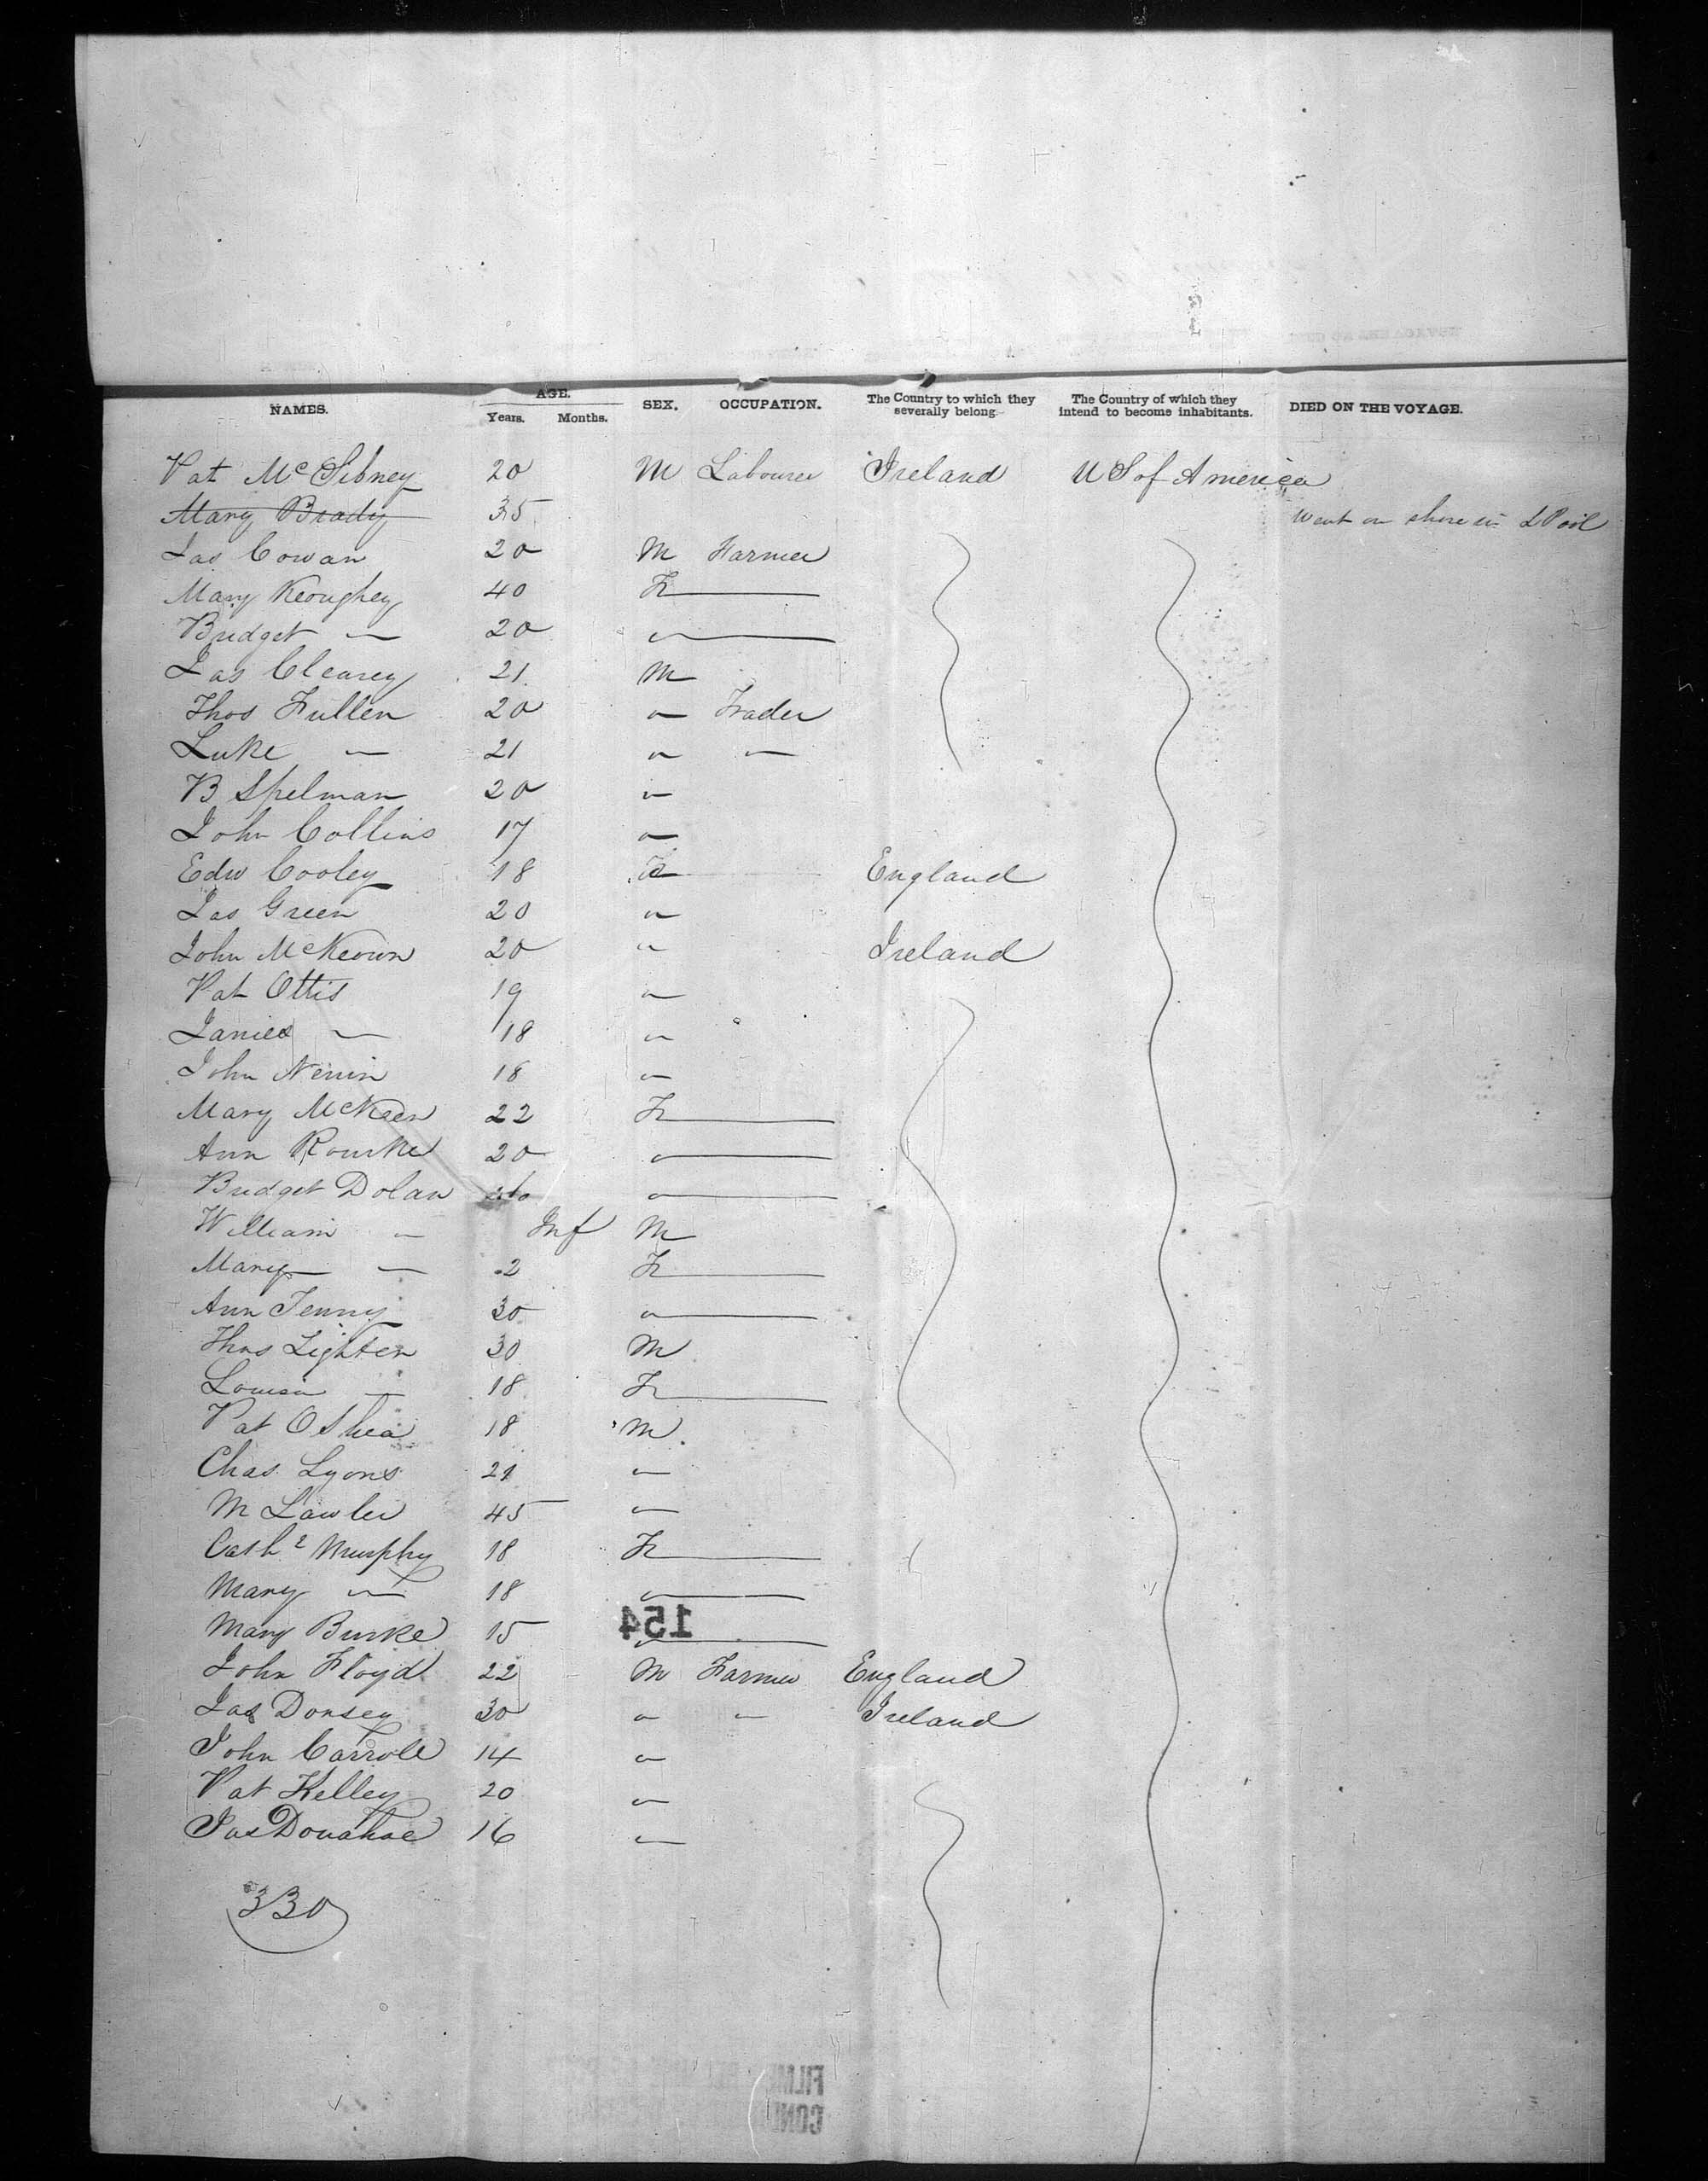 NAMES. AGE. Years. Months. SEX. OCCUPATION. The Country to which they severally belong. The Country of which they intend to become inhabitants. DIED ON THE VOYAGE.
Pat McGibney 20 M Labourer Ireland U S of America
Mary Brady 35 Went on shore in LPool
Jas Cowan 20 M Farmer
Mary Keoughey 40 F
Bridget — 20 "
Jas Clearey 21 M
Thos Fullen 20 " Trader
Luke — 21 " —
B Spelman 20 "
John Collins 17 "
Edw Cooley 18 England
Jas Green 20 "
John McKeown 20 " Ireland
Pat Ottis 19 "
James — 18 "
John Nevin 18 "
Mary McKeen 22 F
Ann Rourke 20 "
Bridget Dolan "
William — Inf M
Mary — 2 F
Ann Fenny 30 "
Thos Lighten 30 M
Louisa — 18 F
Pat OShea 18 M
Chas Lyons 21 "
M Lawler 45 "
Cathe Murphy 18 F
Mary — 18 "
154
Mary Burke 15 "
John Floyd 22 M Farmer England
Jas Dorsey 30 " " Ireland
John Carroll 14 "
Pat Kelley 20 "
Jas Donahoe 16 "
330